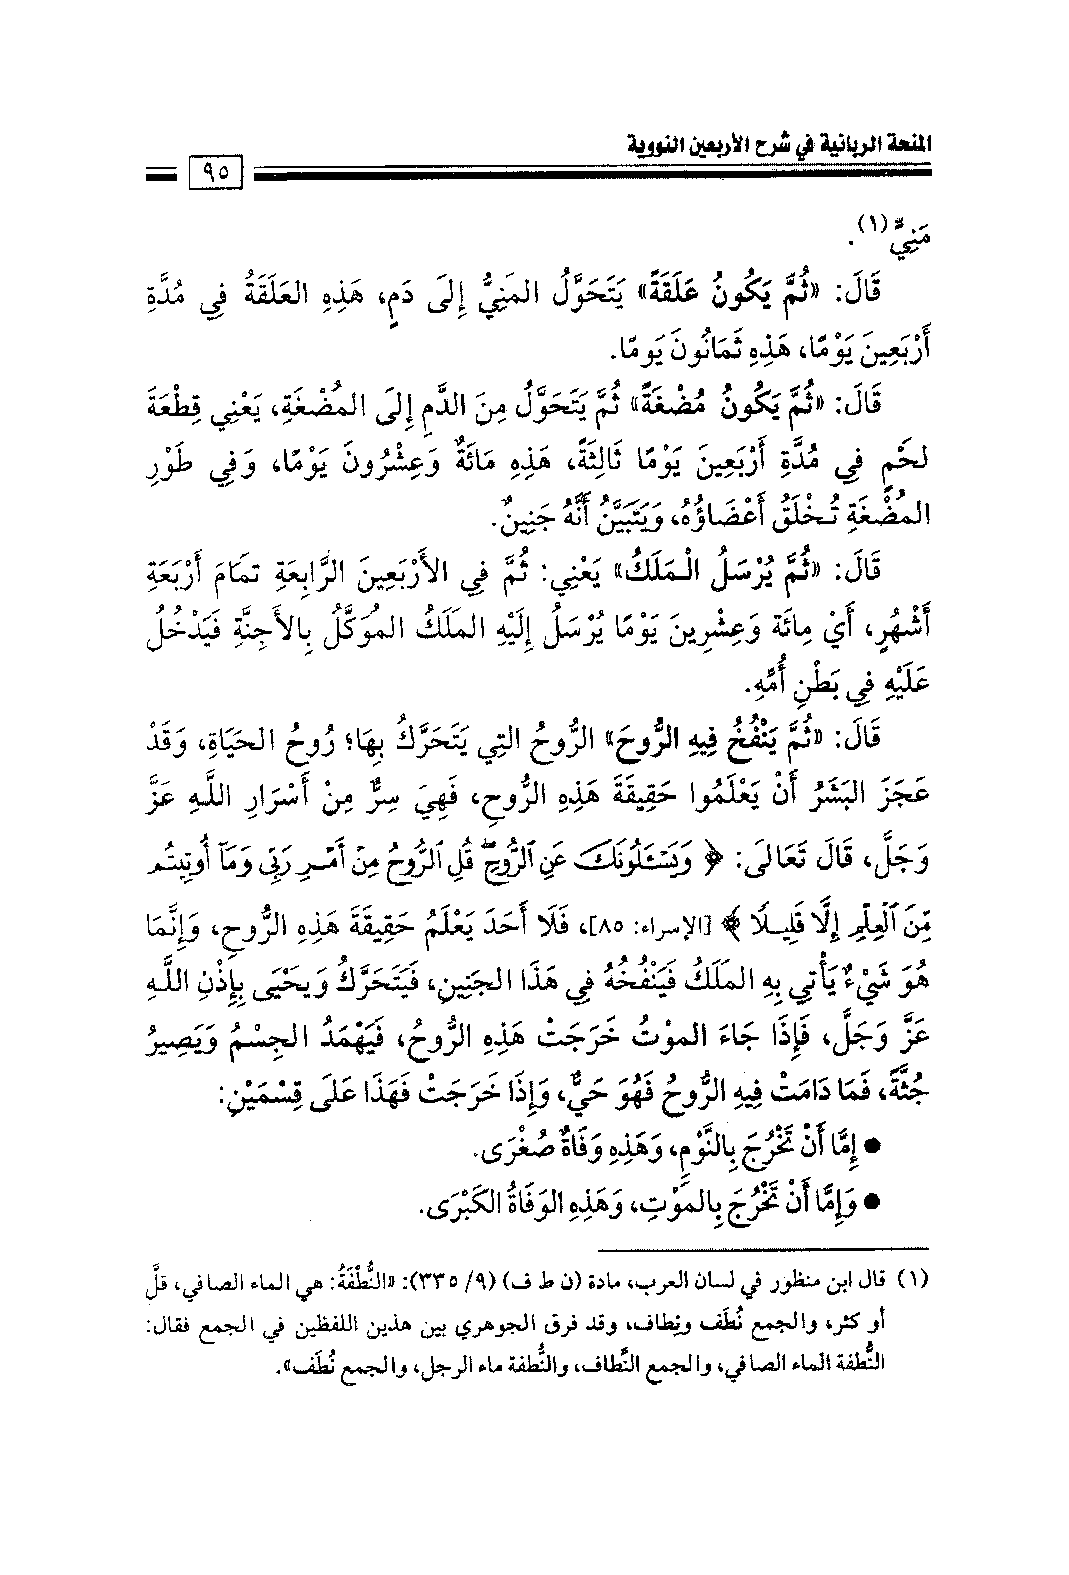 المنحة الربانية في شرح الأربعين النووية
٩٥
مَنِيٌّ (١).
قَالَ: «ثُمَّ يَكُونُ عَلَقَةً» يَتَحَوَّلُ المَنِيُّ إِلَى دَمٍ، هَذِهِ العَلَقَةُ فِي مُدَّةِ
أَرْبَعِينَ يَوْمًا، هَذِهِ ثَمَانُونَ يَومًا.
قَالَ: «ثُمَّ يَكُونُ مُضْغَةً» ثُمَّ يَتَحَوَّلُ مِنَ الدَّمِ إِلَى المُضْغَةِ، يَعْنِي قِطْعَةَ
لَحْمٍ فِي مُدَّةِ أَرْبَعِينَ يَوْمًا ثَالِثَةً، هَذِهِ مَائَةٌ وَعِشْرُونَ يَوْمًا، وَفِي طَوْرِ
المُضْغَةِ تُخْلَقُ أَعْضَاؤُهُ، وَيَتَبَيَّنُ أَنَّهُ جَنِينٌ.
قَالَ: «ثُمَّ يُرْسَلُ الْمَلَكُ» يَعْنِي: ثُمَّ فِي الأَرْبَعِينَ الرَّابِعَةِ تَمَامَ أَرْبَعَةِ
أَشْهُرٍ، أَيْ مِائَة وَعِشْرِينَ يَوْمًا يُرْسَلُ إِلَيْهِ المَلَكُ المُوَكَّلُ بِالأَجِنَّةِ فَيَدْخُلُ
عَلَيْهِ فِي بَطْنِ أُمِّهِ.
قَالَ: «ثُمَّ يَنْفُخُ فِيهِ الرُّوحَ» الرُّوحُ التِي يَتَحَرَّكُ بِهَا؛ رُوحُ الحَيَاةِ، وَقَدْ
عَجَزَ البَشَرُ أَنْ يَعْلَمُوا حَقِيقَةَ هَذِهِ الرُّوحِ، فَهِيَ سِرٌّ مِنْ أَسْرَارِ اللَّهِ عَزَّ
وَجَلَّ، قَالَ تَعَالَى: ﴿ وَيَسْـَٔلُونَكَ عَنِ ٱلرُّوحِۖ قُلِ ٱلرُّوحُ مِنْ أَمْرِ رَبِّى وَمَآ أُوتِيتُم
مِّنَ ٱلْعِلْمِ إِلَّا قَلِيلًا ﴾ [الإسراء: ٨٥]، فَلَا أَحَدَ يَعْلَمُ حَقِيقَةَ هَذِهِ الرُّوحِ، وَإِنَّمَا
هُوَ شَيْءٌ يَأْتِي بِهِ المَلَكُ فَيَنْفُخُهُ فِي هَذَا الجَنِينِ، فَيَتَحَرَّكُ وَيَحْيَى بِإِذْنِ اللَّهِ
عَزَّ وَجَلَّ، فَإِذَا جَاءَ الموْتُ خَرَجَتْ هَذِهِ الرُّوحُ، فَيَهْمَدُ الجِسْمُ وَيَصِيرُ
جُثَّةً، فَمَا دَامَتْ فِيهِ الرُّوحُ فَهُوَ حَيٌّ، وَإِذَا خَرَجَتْ فَهَذَا عَلَى قِسْمَيْنِ:
● إِمَّا أَنْ تَخْرُجَ بِالنَّوْمِ، وَهَذِهِ وَفَاةٌ صُغْرَى.
● وَإِمَّا أَنْ تَخْرُجَ بِالمَوْتِ، وَهَذِهِ الوَفَاةُ الكَبْرَى.
(١) قال ابن منظور في لسان العرب، مادة (ن ط ف) (٩/ ٣٣٥): «النُّطْفَةُ: هي الماء الصافي، قلَّ
أو كثر، والجمع نُطَف ونِطاف، وقد فرق الجوهري بين هذين اللفظين في الجمع فقال:
النُّطفة الماء الصافي، والجمع النِّطاف، والنُّطفة ماء الرجل، والجمع نُطَف».